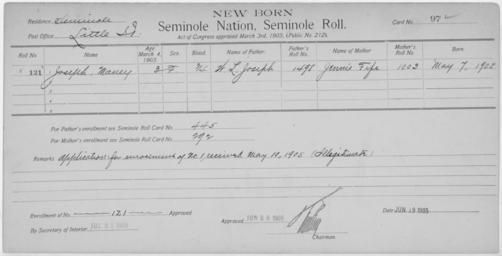 NEW BORN
Residence: Seminole
Seminole Nation, Seminole Roll.
Card No. 97
Post Office Little
Act of Congress approved March 3rd, 1905, (Public No. 212).
Roll No. Name Age March 4, 1905 Sex. Blood. Name of Father. Father's Roll No. Name of Mother Mother's Roll No. Born
121 Joseph, Maney 3 F W. L. Joseph 1498 Jennie Fife 1203 May 7, 1902
For Father's enrollment see Seminole Roll Card No. 445
For Mother's enrollment see Seminole Roll Card No. 292
Remarks Application for enrollment of No. 1, received May 10, 1905 (Illegitimate)
Enrollment of No. 121 Approved
Approved
Date JUN 19 1905
By Secretary of Interior
Chairman.